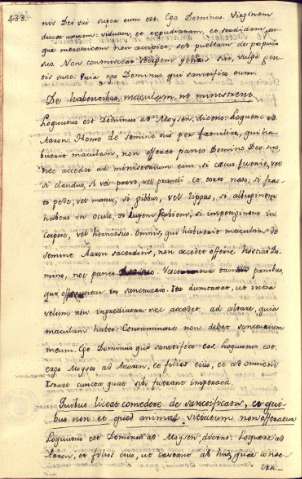 533.
nis Dei sui super eum est. Ego Dominus. Virginem
ducet uxorem: viduam, et repudiatam, et sordidam, at-
que meretricem non accipiet, sed puellam de populo
suo. Non commisceat stirpem generis sui, vulgo gen-
tis suæ: quia ego Dominus qui sanctifico eum.
De habentibus maculam, ne ministrent.
Loquutus est Dominus ad Moysen, dicens: Loquere ad
Aaron. Homo de semine tuo per familias, qui ha-
buerit maculam, non offeret panes Domino Deo suo
nec accedet ad ministerium eius: si cæcus fuerit, vel
si claudus, si vel parvo, vel grandi, et torto naso, si frac-
to pede, vel manu, si gibbus, vel lippus, si albuginem
habens in oculo, si iugem scabiem, si impetiginem in
corpore, vel herniosus. Omnis, qui habuerit maculam de
semine Aaron sacerdotis, non accedet offerre hostias Do-
mino, nec panes Vescetur tamen panibus,
qui offeruntur in sanctuario. Ita dumtaxat, ut intra
velum non ingrediatur nec accedat ad altare, quia
maculam habet. Contaminare non debet sanctuarium
meum. Ego Dominus qui sanctifico eos. Loquutus est
ergo Moyses ad Aaron, et filios eius, et ad omnem
Israel cuncta quæ sibi fuerant imperata.
Quibus liceat comedere de sanctificatis, et qui-
bus non: et quod animal vitiatum non offeratur
Loquutus est Dominus ad Moysen, dicens: Loquere ad
Aaron, et filios eius, ut caveant ab his, quæ conse-
cra-